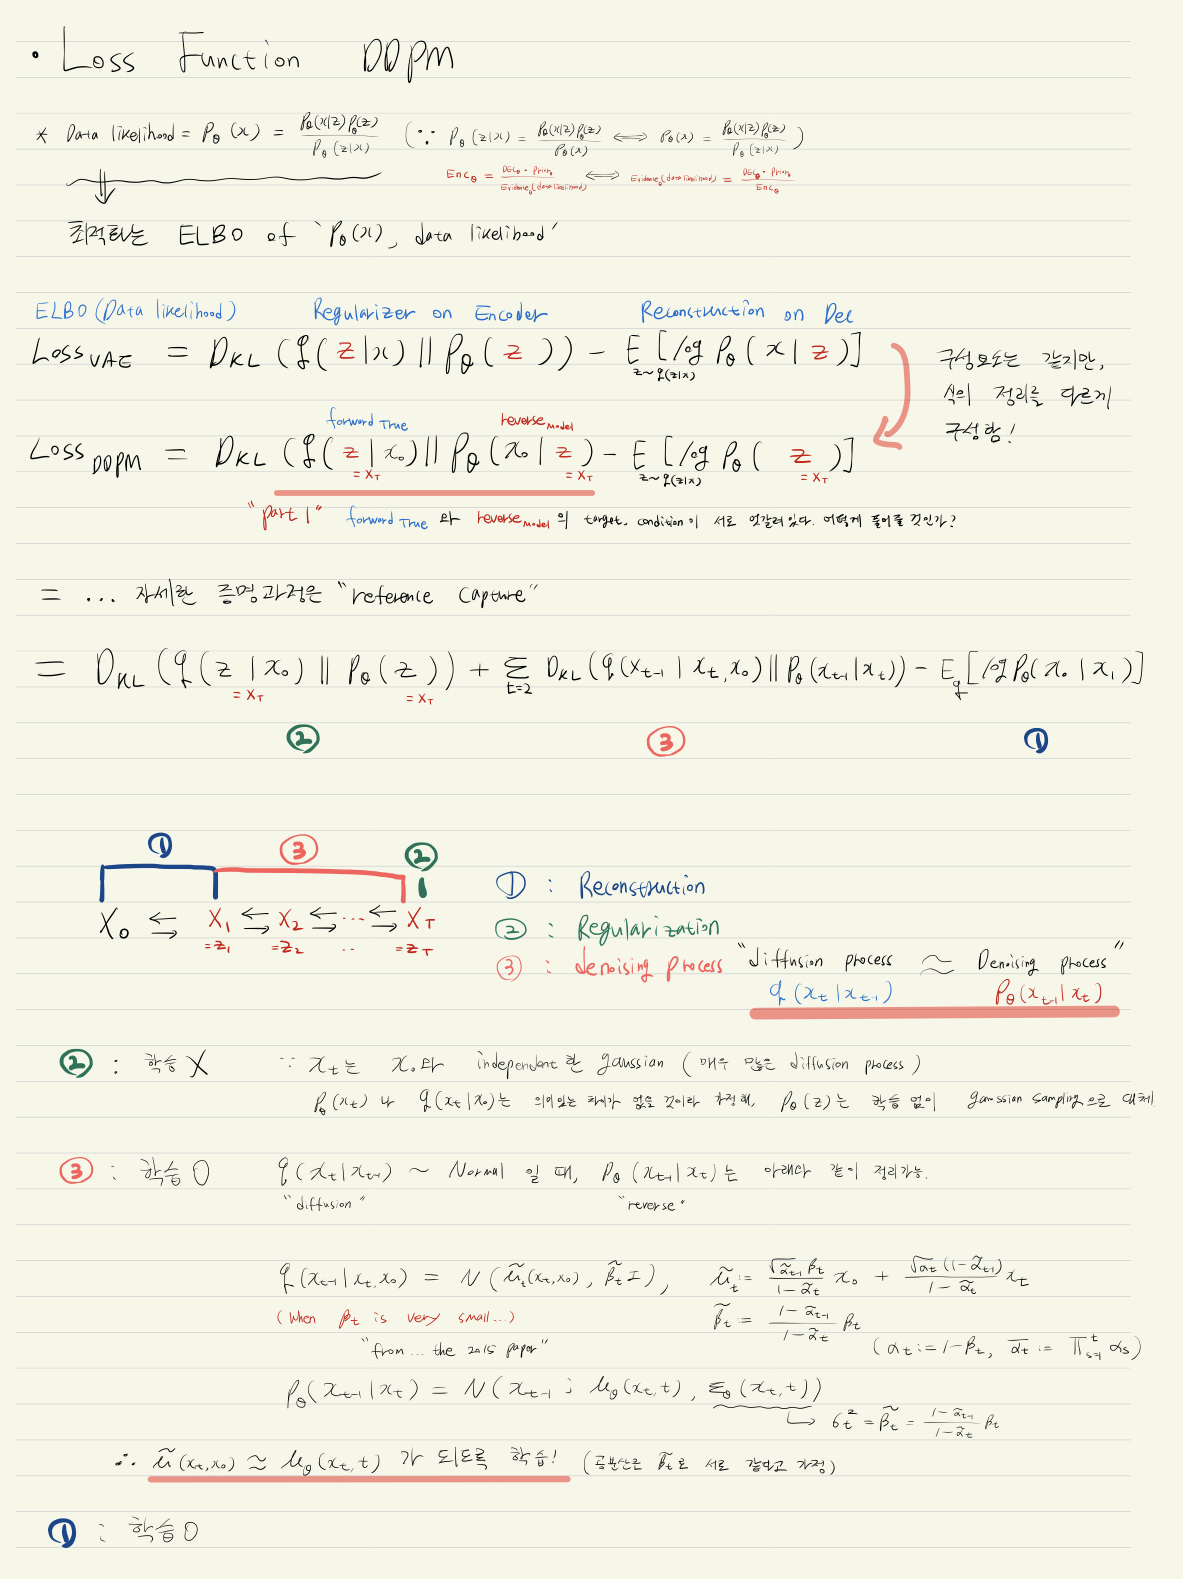 • Loss Function DDPM
* Data likelihood = Pθ(x) = Pθ(x|z)Pθ(z) / Pθ(z|x) (∵ Pθ(z|x) = Pθ(x|z)Pθ(z) / Pθ(x) ⟺ Pθ(x) = Pθ(x|z)Pθ(z) / Pθ(z|x))
Encθ = Decθ · Priorθ / Evidenceθ(data likelihood) ⟺ Evidenceθ(data likelihood) = Decθ · Priorθ / Encθ
최적화는 ELBO of 'Pθ(x), data likelihood'
ELBO(Data likelihood) Regularizer on Encoder Reconstruction on Dec
Loss VAE = DKL(q(z|x) || Pθ(z)) - E z~q(z|x) [log Pθ(x|z)]
구성요소는 같지만,
식의 정리를 다르게
구성함!
forward True reverse model
Loss DDPM = DKL(q(z|x₀) || Pθ(x₀|z) - E z~q(z|x) [log Pθ(z)]
= XT = XT = XT
"part 1" forward True 와 reverse model 의 target, condition이 서로 엇갈려있다. 어떻게 풀어줄 것인가?
= ... 자세한 증명과정은 "reference capture"
= DKL(q(z|x₀) || Pθ(z)) + Σ t=2 DKL(q(xt-1|xt,x₀) || Pθ(xt-1|xt)) - Eq[log Pθ(x₀|x₁)]
= XT = XT
② ③ ①
① ③ ②
X₀ ⇆ X₁ ⇆ X₂ ⇆ ... ⇆ XT
= z₁ = z₂ .. = zT
① : Reconstruction
② : Regularization
③ : denoising process "diffusion process ≈ Denoising process"
q(xt|xt-1) Pθ(xt-1|xt)
② : 학습 X ∵ xt는 x₀와 independent한 gaussian (매우 많은 diffusion process)
Pθ(xt)나 q(xt|x₀)는 의미있는 차이가 없을 것이라 가정해, Pθ(z)는 학습 없이 gaussian sampling으로 대체
③ : 학습 O q(xt|xt-1) ~ Normal 일 때, Pθ(xt-1|xt)는 아래와 같이 정리가능.
"diffusion" "reverse"
q(xt-1|xt,x₀) = N(μ̃t(xt,x₀), β̃t I), μ̃t := √α̃t-1 βt / 1-α̃t x₀ + √αt(1-α̃t-1) / 1-α̃t xt
(When βt is very small...) β̃t := 1-α̃t-1 / 1-α̃t βt
"from... the 2015 paper" (αt := 1-βt, α̅t := ∏ᵗs=1 αs)
Pθ(xt-1|xt) = N(xt-1 ; μθ(xt,t), Σθ(xt,t))
↳ σt² = β̃t = 1-α̃t-1 / 1-α̃t βt
∴ μ̃(xt,x₀) ≈ μθ(xt,t) 가 되도록 학습! (공분산은 β̃t로 서로 같다고 가정)
① : 학습 O